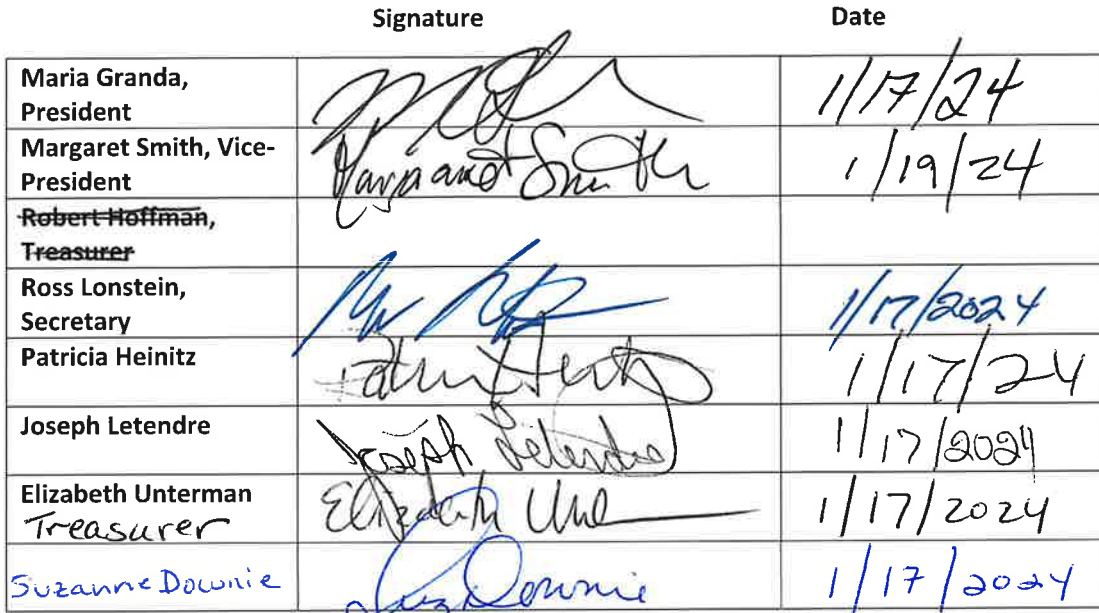 Signature Date
Maria Granda,
President
1/17/24
Margaret Smith, Vice-
President
Margaret Smith
1/19/24
Robert Hoffman,
Treasurer
Ross Lonstein,
Secretary
1/17/2024
Patricia Heinitz
1/17/24
Joseph Letendre
Joseph Letendre
1/17/2024
Elizabeth Unterman
Treasurer
Elizabeth
1/17/2024
Suzanne Downie
Downie
1/17/2024